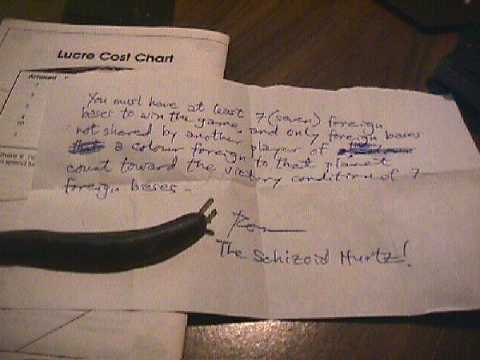 Lucre Cost Chart
Amount
You must have at least 7 (seven) foreign
bases to win the game and only foreign bases
not shared by another player of
a colour foreign to that planet
count toward the victory condition of 7
foreign bases.
Ron
The Schizoid Hurtz!